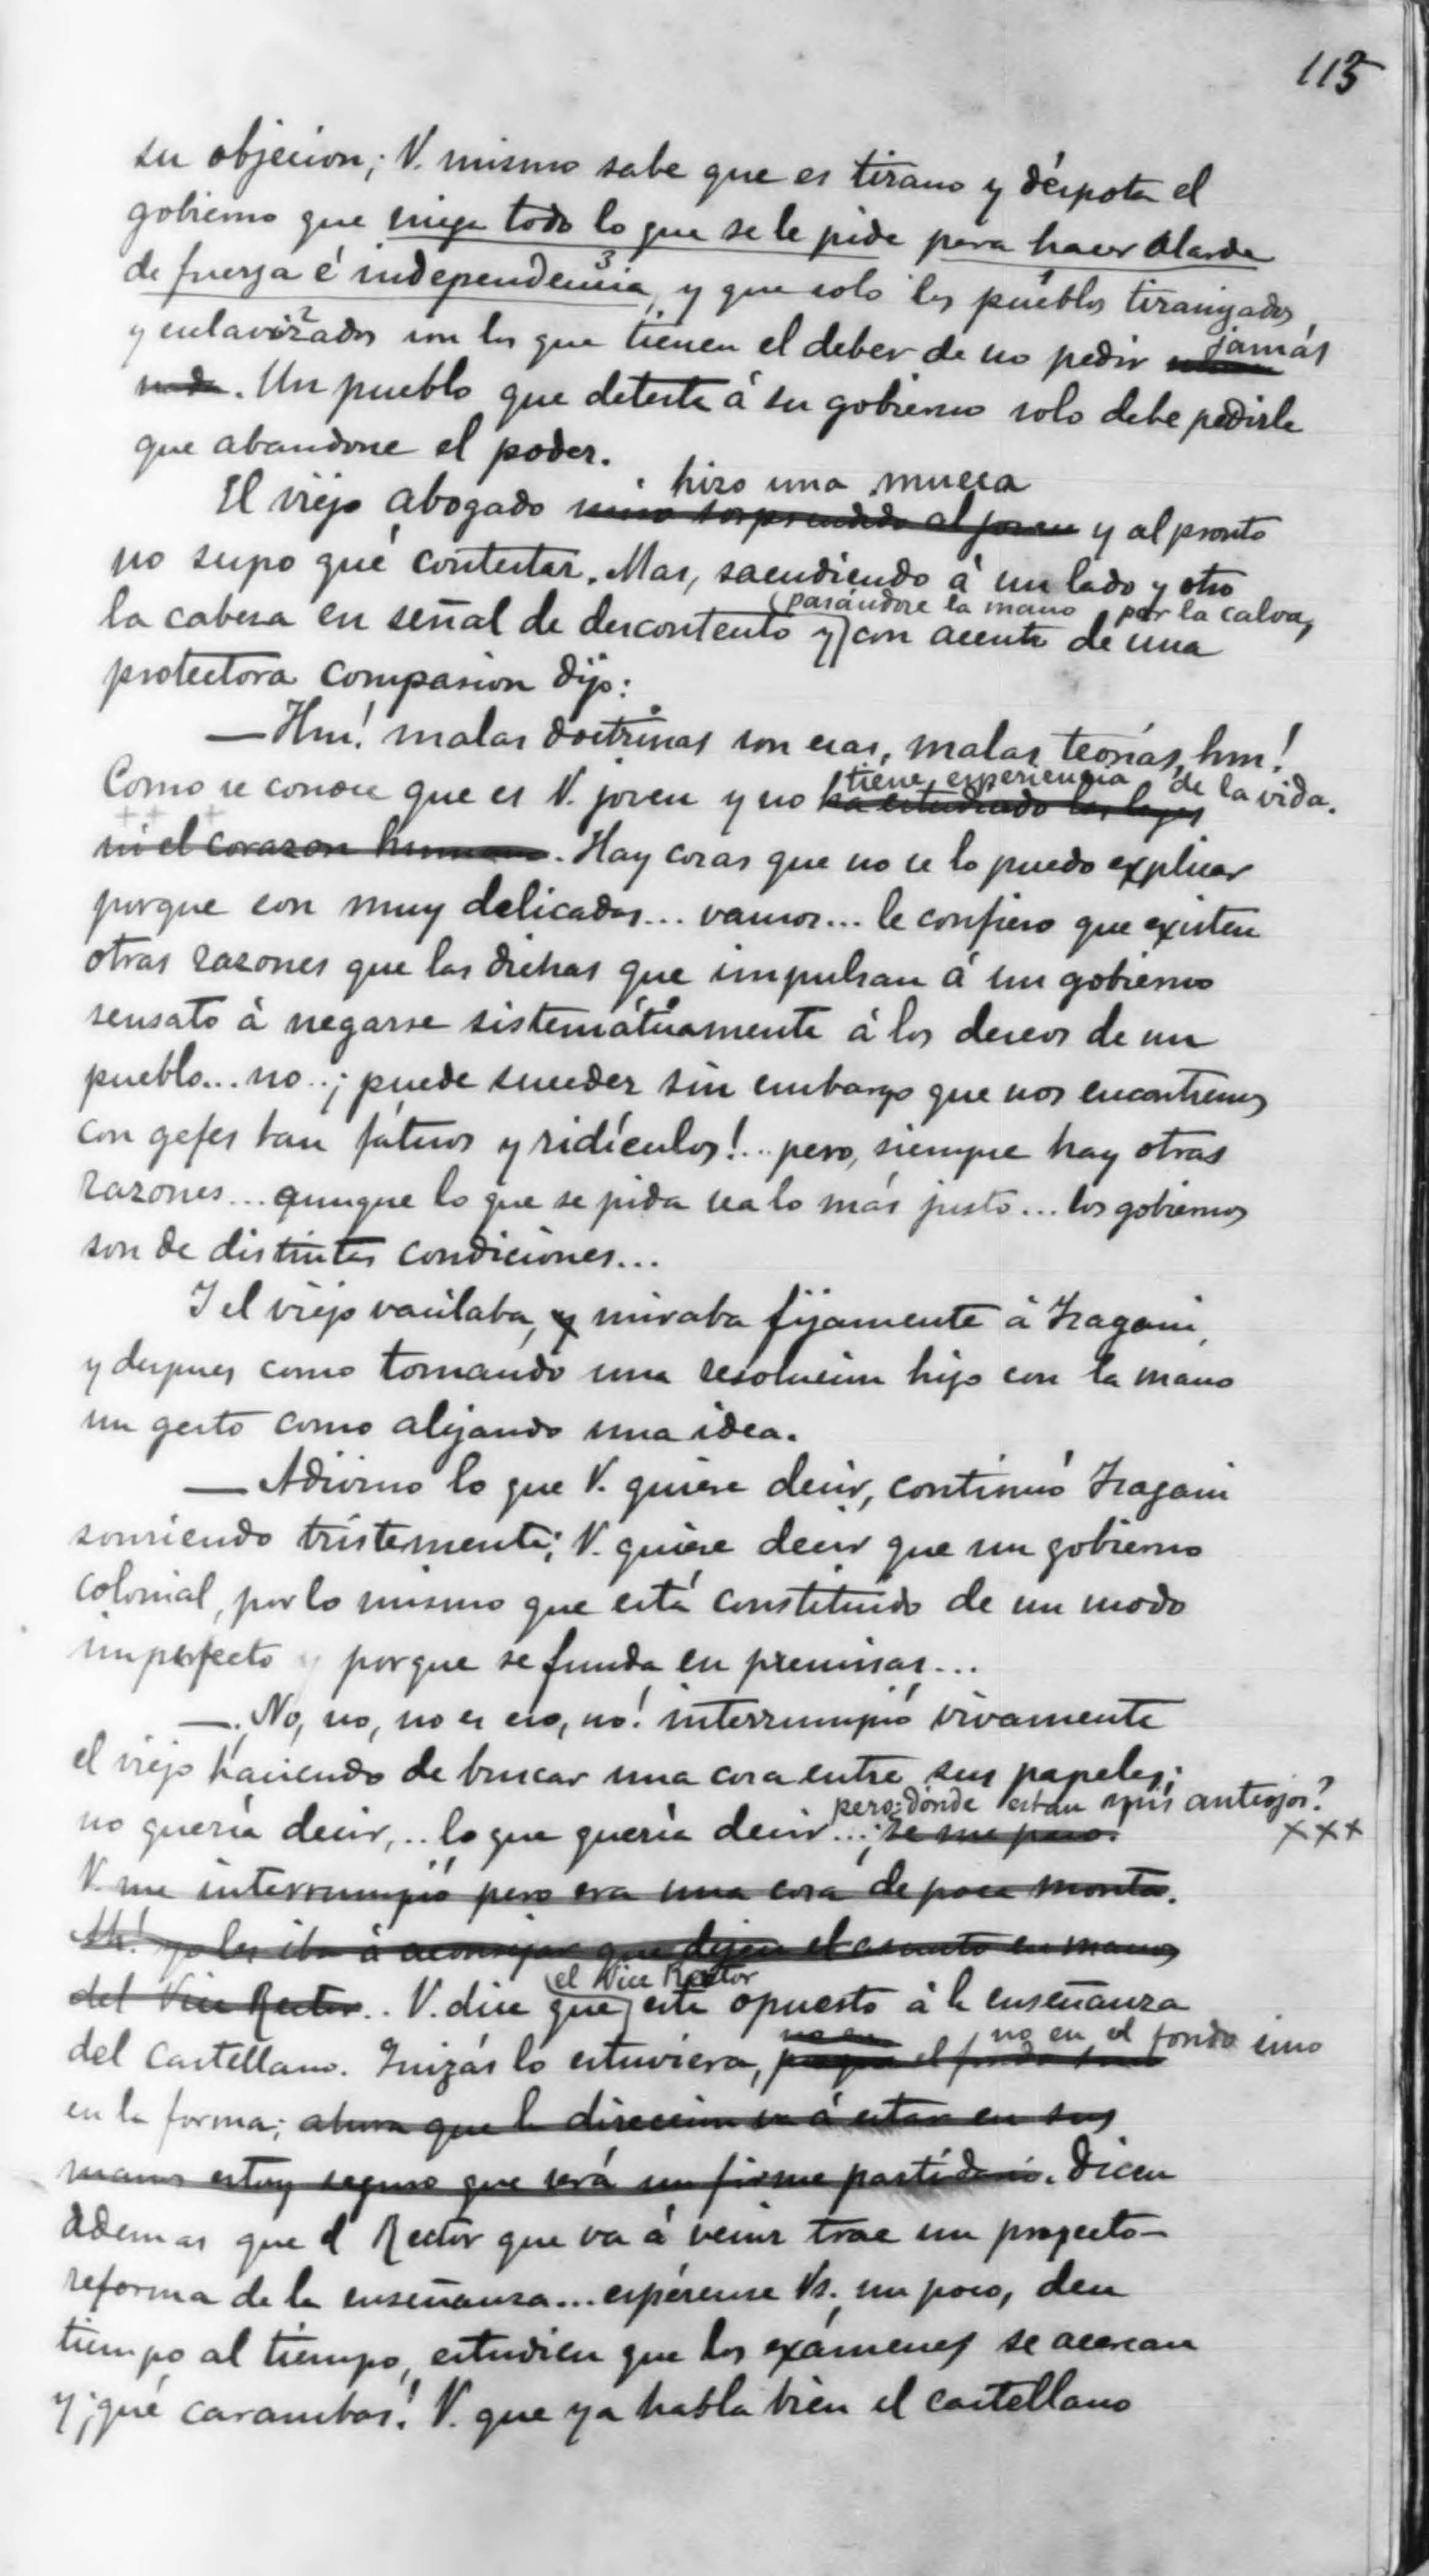 115
su objecion; V. mismo sabe que es tirano y déspota el
gobierno que niega todo lo que se le pide para hacer alarde
de fuerza é independencia, y que solo los pueblos tiranizados
y esclavizados son los que tienen el deber de no pedir jamás
nada. Un pueblo que deteste á su gobierno solo debe pedirle
que abandone el poder.
hizo una mueca
El viejo abogado miró sorprendido al joven y al pronto
no supo qué contestar. Mas, sacudiendo á un lado y otro
pasándose la mano por la calva,
la cabeza en señal de descontento y con acento de una
protectora compasion dijo:
—Hm! malas doctrinas son esas, malas teorías, hm!
tiene experiencia de la vida.
Como se conoce que es V. joven y no ha estudiado las leyes
ni el corazon humano. Hay cosas que no se lo puedo explicar
porque son muy delicadas... vamos... le confieso que existen
otras razones que las dichas que impulsan á un gobierno
sensato á negarse sistemáticamente á los deseos de un
pueblo... no..; puede suceder sin embargo que nos encontremos
con gefes tan fátuos y ridículos!... pero, siempre hay otras
razones... aunque lo que se pida sea lo más justo... los gobiernos
son de distintas condiciones...
Y el viejo vacilaba, y miraba fijamente á Isagani,
y despues como tomando una resolucion hizo con la mano
un gesto como alejando una idea.
—Adivino lo que V. quiere decir, continuó Isagani
sonriendo tristemente; V. quiere decir que un gobierno
colonial, por lo mismo que está constituido de un modo
imperfecto y porque se funda en premisas...
—¡No, no, no es eso, no! interrumpió vivamente
el viejo haciendo de buscar una cosa entre sus papeles;
pero ¿dónde estan mis anteojos?
no quería decir,.. lo que quería decir...; se me pasó. xxx
V. me interrumpió pero era una cosa de poca monta.
Ah! yo les iba á aconsejar que dejen el asunto en manos
el Vice Rector
del Vice Rector.. V. dice que este opuesto á la enseñanza
no en el fondo sino
del Castellano. Quizás lo estuviera,
en la forma; ahora que la direccion va á estar en sus
manos estoy seguro que será un firme partidario. Dicen
ademas que el Rector que va á venir trae un proyecto-
reforma de la enseñanza... espérense Vs. un poco, den
tiempo al tiempo, estudien que los exámenes se acercan
y ¡qué carambas! V. que ya habla bien el castellano